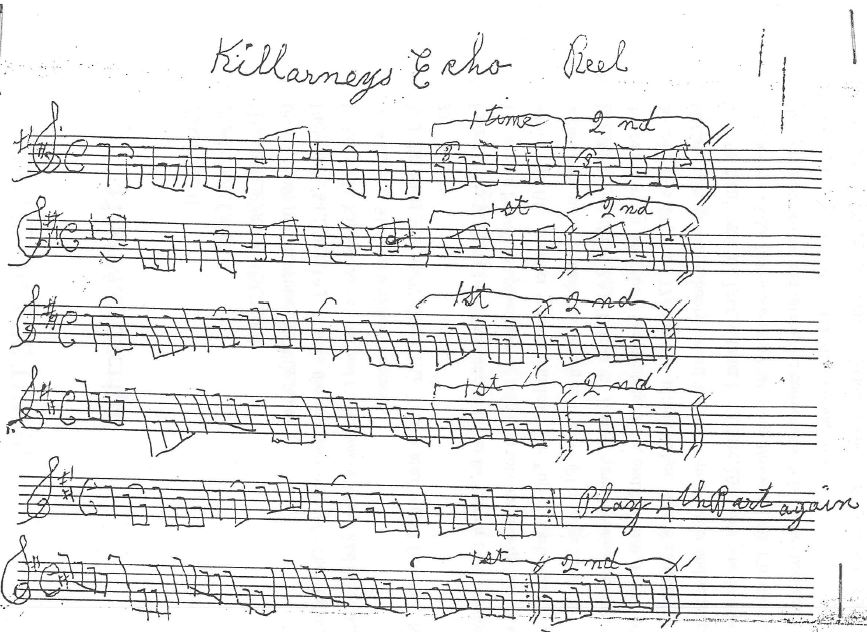 Killarneys Echo Reel
1 time 2 nd
1st 2nd
1st 2 nd
1st 2 nd
Play 4 th Part again
1st 2 nd